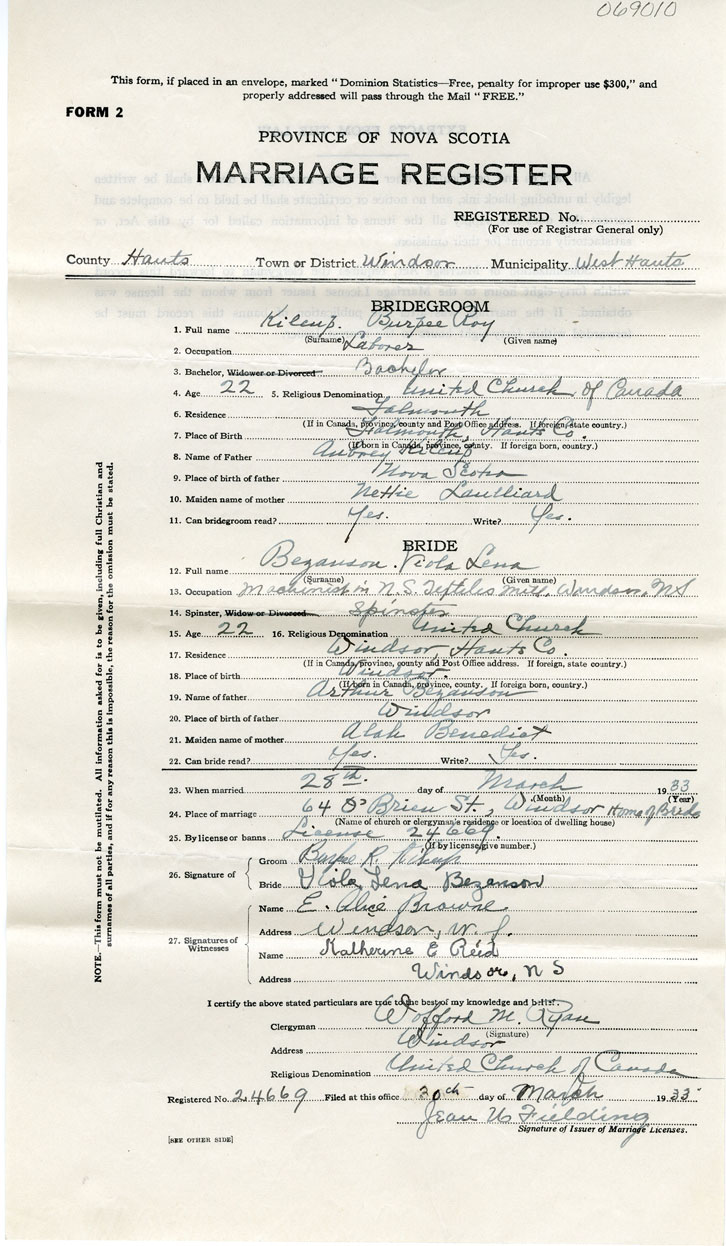 069010
This form, if placed in an envelope, marked "Dominion Statistics—Free, penalty for improper use $300," and
properly addressed will pass through the Mail "FREE."
FORM 2
PROVINCE OF NOVA SCOTIA
MARRIAGE REGISTER
REGISTERED No.
(For use of Registrar General only)
County Hants Town or District Windsor Municipality West Hants
BRIDEGROOM
1. Full name Kilcup. Burpee Roy
(Surname) (Given name)
2. Occupation Laborer
3. Bachelor, Widower or Divorced Bachelor
4. Age 22 5. Religious Denomination United Church of Canada
6. Residence Falmouth
(If in Canada, province, county and Post Office address. If foreign, state country.)
7. Place of Birth Falmouth, Hants Co.
(If born in Canada, province, county. If foreign born, country.)
8. Name of Father Aubrey Kilcup
9. Place of birth of father Nova Scotia
10. Maiden name of mother Nettie Laulliard
11. Can bridegroom read? Yes. Write? Yes.
BRIDE
12. Full name Bezanson. Viola Lena
(Surname) (Given name)
13. Occupation Machinist in N.S. Textiles Mill, Windsor, NS
14. Spinster, Widow or Divorced Spinster
15. Age 22 16. Religious Denomination United Church
17. Residence Windsor, Hants Co.
(If in Canada, province, county and Post Office address. If foreign, state country.)
18. Place of birth Windsor.
(If born in Canada, province, county, If foreign born, country.)
19. Name of father Arthur Bezanson
20. Place of birth of father Windsor
21. Maiden name of mother Benedict
22. Can bride read? Yes. Write? Yes.
23. When married 28th. day of March 1933
(Month) (Year)
24. Place of marriage 64 O'Brien St., Windsor Home of Bride
(Name of church or clergyman's residence or location of dwelling house)
25. By license or banns License 24669.
(If by license, give number.)
26. Signature of
Groom Burpee R. Kilcup
Bride Viola Lena Bezanson
27. Signatures of Witnesses
Name E. Alice Browne
Address Windsor, N.S.
Name Katherine E Reid
Address Windsor, N S
I certify the above stated particulars are true to the best of my knowledge and belief.
Clergyman Wofford M. Ryan
(Signature)
Address Windsor
Religious Denomination United Church of Canada
Registered No. 24669 Filed at this office 30th day of March 1933
Jean W Fielding
Signature of Issuer of Marriage Licenses.
[SEE OTHER SIDE]
NOTE.—This form must not be mutilated. All information asked for is to be given, including full Christian and
surnames of all parties, and if for any reason this is impossible, the reason for the omission must be stated.